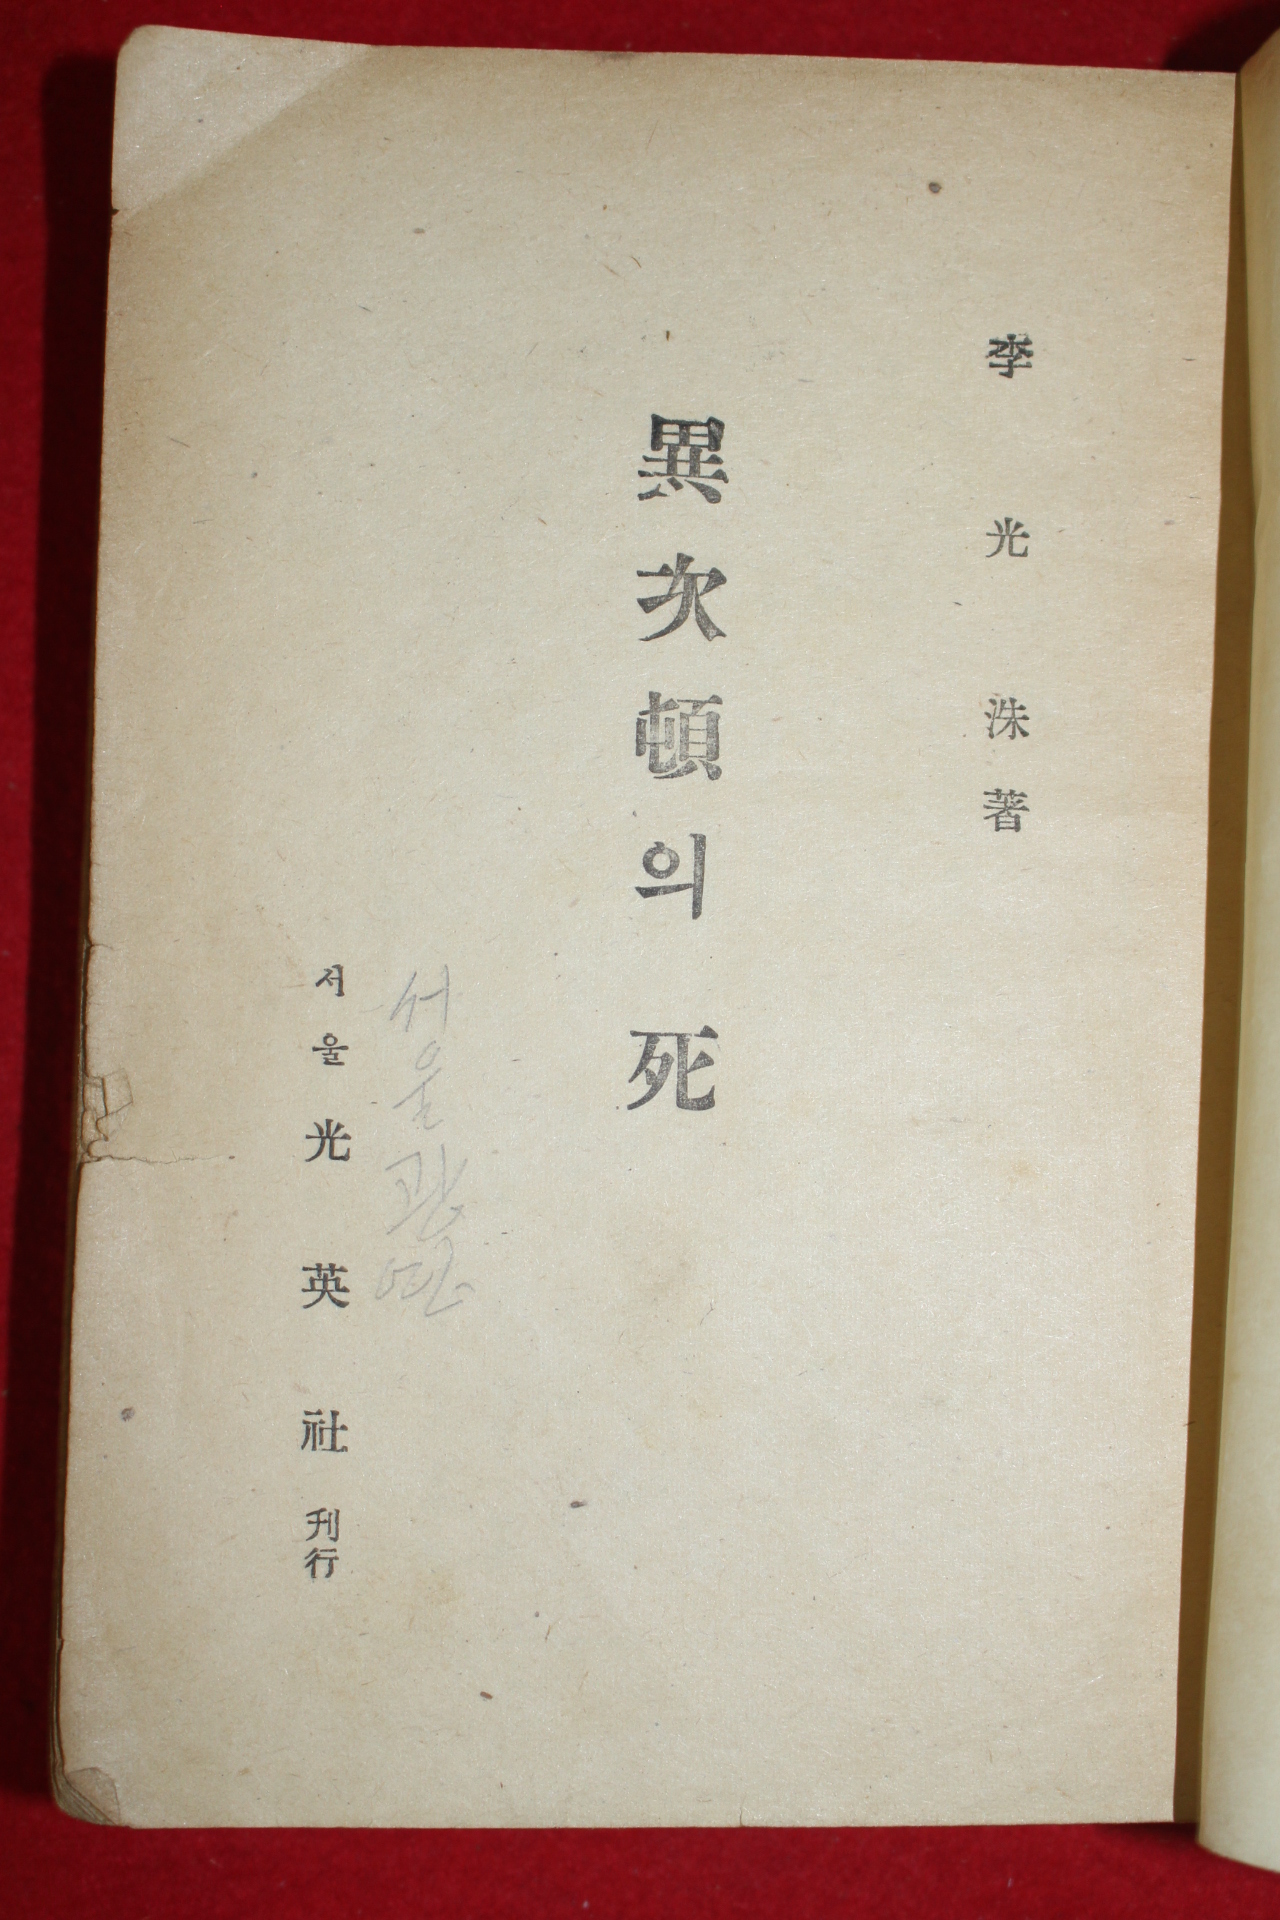 李光洙著
異次頓의 死
서울광
서울 光英社 刊行